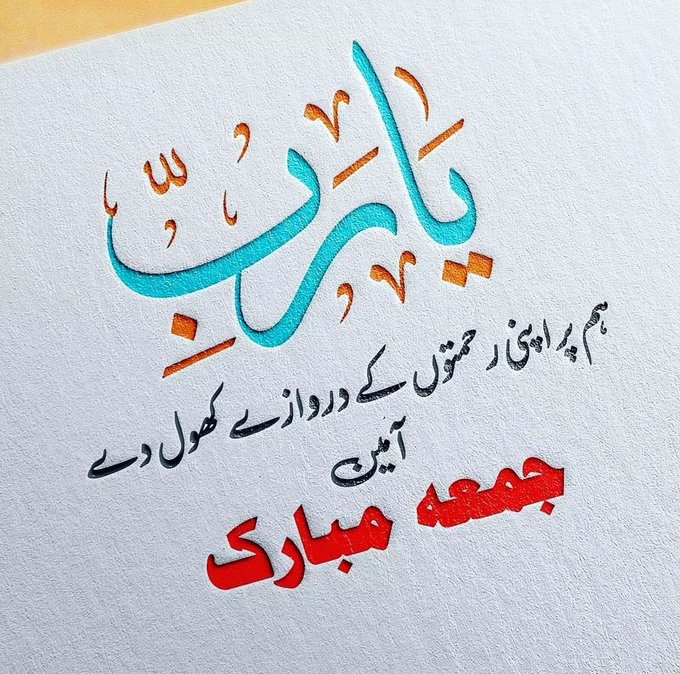 يَا رَبِّ
ہم پر اپنی رحمتوں کے دروازے کھول دے
آمین
جمعہ مبارک